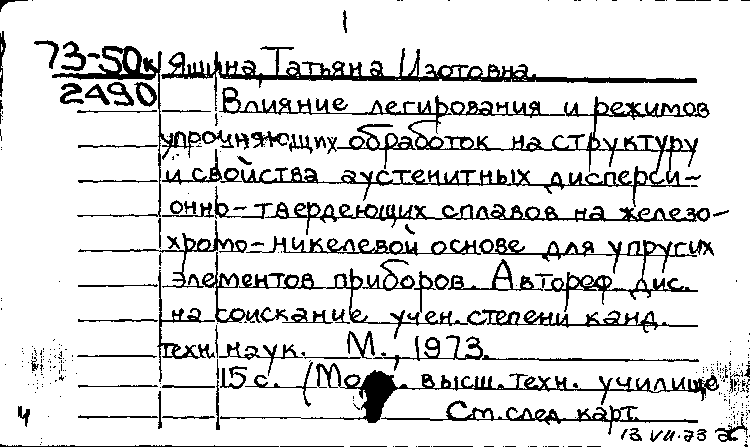 1
73-50к Яшина, Татьяна Изотовна.
2490 Влияние легирования и режимов
упрочняющих обработок на структуру
и свойства аустенитных дисперси-
онно-твердеющих сплавов на железо-
хромо-никелевой основе для упругих
элементов приборов. Автореф. дис.
на соискание учен. степени канд.
техн. наук. М., 1973.
15 с. (высш. техн. училище
Ч См. след карт.
13.VII.73